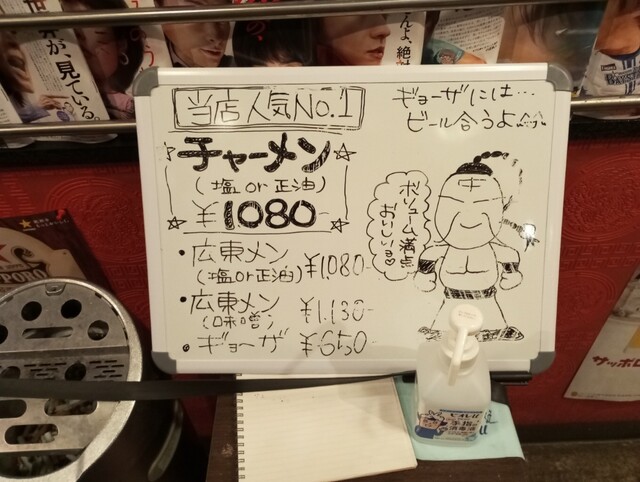 が、見ている。
当店人気NO.1
チャーメン
(塩 or 正油)
¥1080-
・広東メン
(塩 or 正油) ¥1,080-
・広東メン
(味噌) ¥1,130-
・ギョーザ ¥650-
ギョーザには…
ビール合うよ
ボリューム満点
おいしいよ♡
中
サッポロ